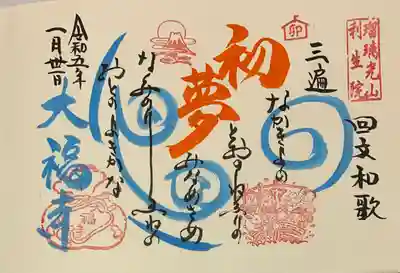 瑠璃光山
利生院
回文和歌
卯
三遍
なかきよの
とおのねふりの
みなめさめ
なみのりふねの
おとのよきかな
初夢
大福寺
令和五年
一月卅日